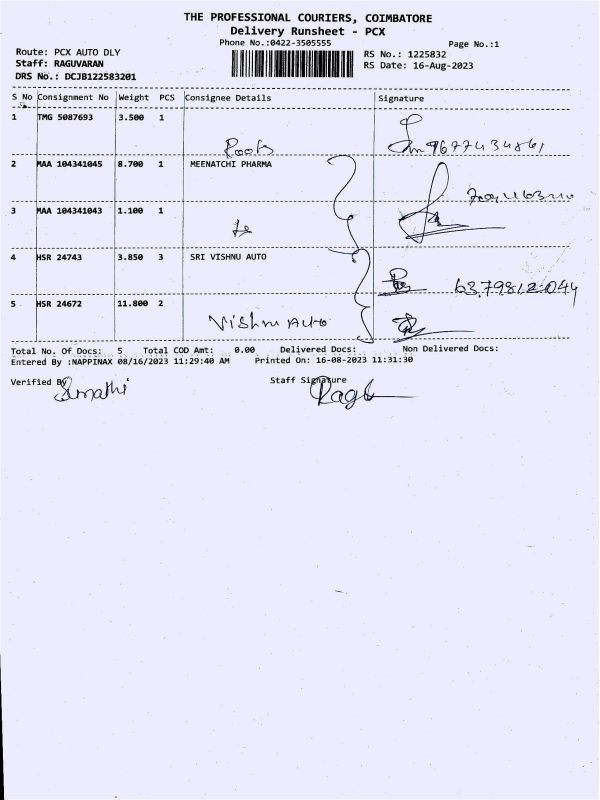 THE PROFESSIONAL COURIERS, COIMBATORE
Delivery Runsheet - PCX
Phone No.:0422-3505555
Page No.:1
Route: PCX AUTO DLY
RS No.: 1225832
Staff: RAGUVARAN
RS Date: 16-Aug-2023
DRS No.: DCJB122583201
S No Consignment No Weight PCS Consignee Details Signature
1 TMG 5087693 3.500 1
9677434861
2 MAA 104341045 8.700 1 MEENATCHI PHARMA
3 MAA 104341043 1.100 1
4 HSR 24743 3.850 3 SRI VISHNU AUTO
5 HSR 24672 11.800 2
Vishnu Auto
Total No. Of Docs: 5 Total COD Amt: 0.00 Delivered Docs: Non Delivered Docs:
Entered By :NAPPINAX 08/16/2023 11:29:40 AM Printed On: 16-08-2023 11:31:30
Verified By Staff Signature